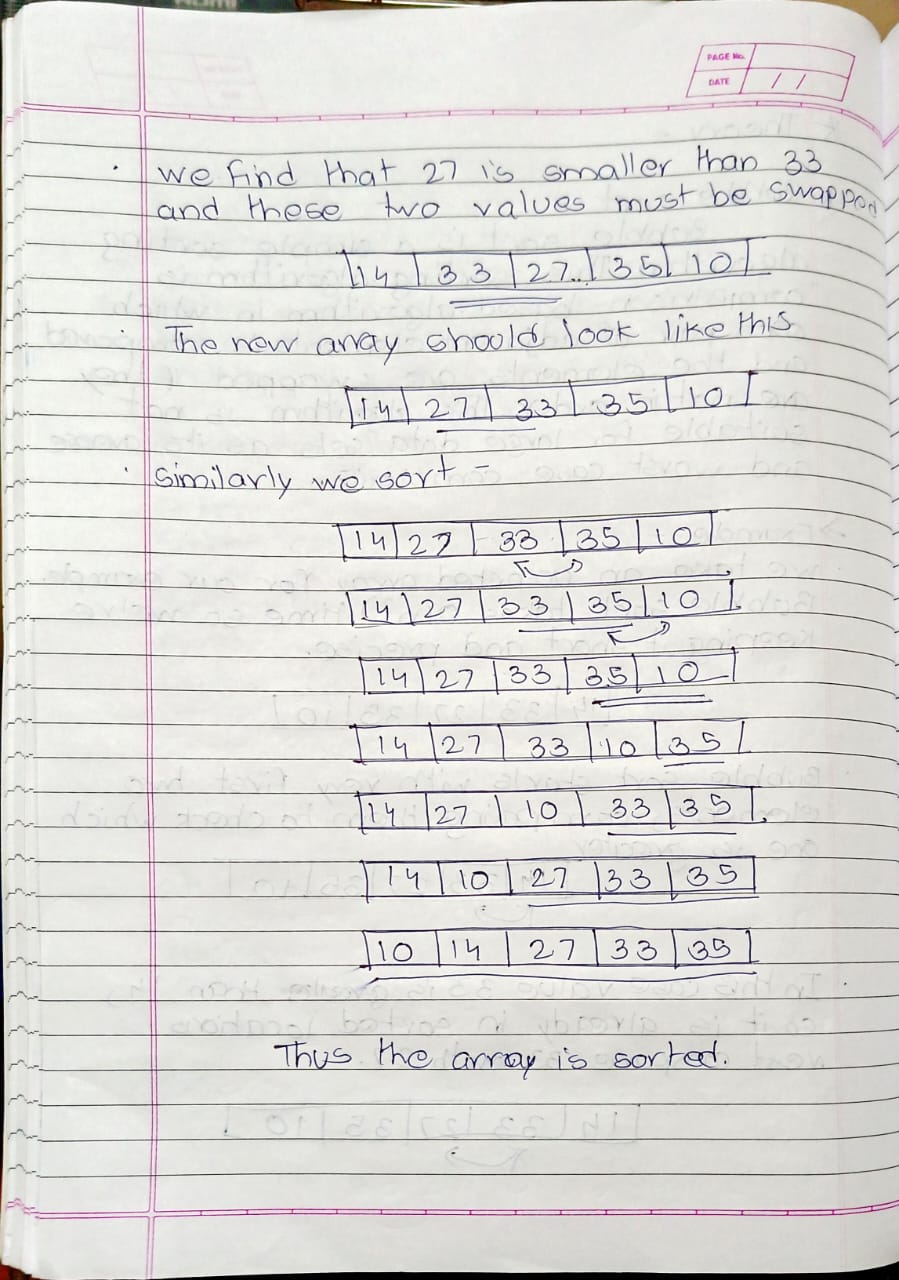 PAGE No.
DATE / /
• we find that 27 is smaller than 33
and these two values must be swapped
14 | 33 | 27 | 35 | 10
• The new array should look like this
14 | 27 | 33 | 35 | 10
• Similarly we sort -
14 | 27 | 33 | 35 | 10
14 | 27 | 33 | 35 | 10
14 | 27 | 33 | 35 | 10
14 | 27 | 33 | 10 | 35
14 | 27 | 10 | 33 | 35
14 | 10 | 27 | 33 | 35
10 | 14 | 27 | 33 | 35
Thus the array is sorted.